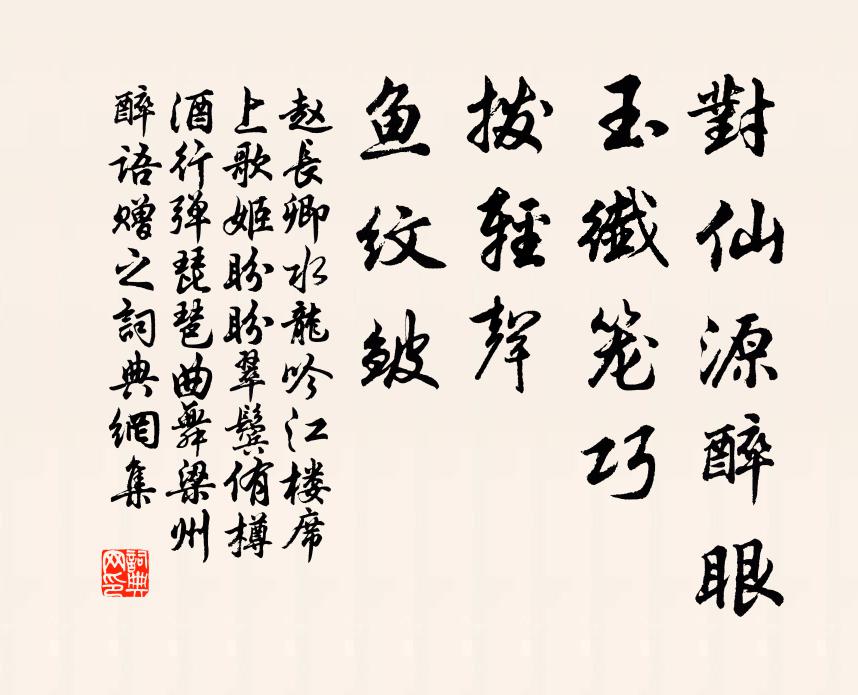 對仙源醉眼
玉纖笼巧
拨輕聲
鱼纹皱
赵長卿水龍吟江楼席
上歌姬盼盼翠鬓侑樽
酒行弹琵琶曲舞梁州
醉语赠之詞典網集
詞典
网印